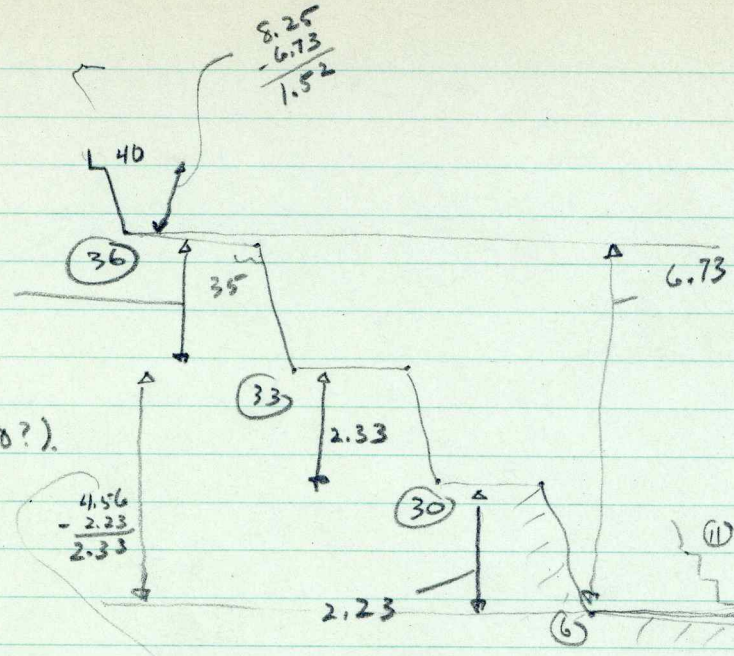 8.25
-6.73
1.52
40
36
35
6.73
33
2.33
o?).
4.56
- 2.23
2.33
30
11
2.23
6